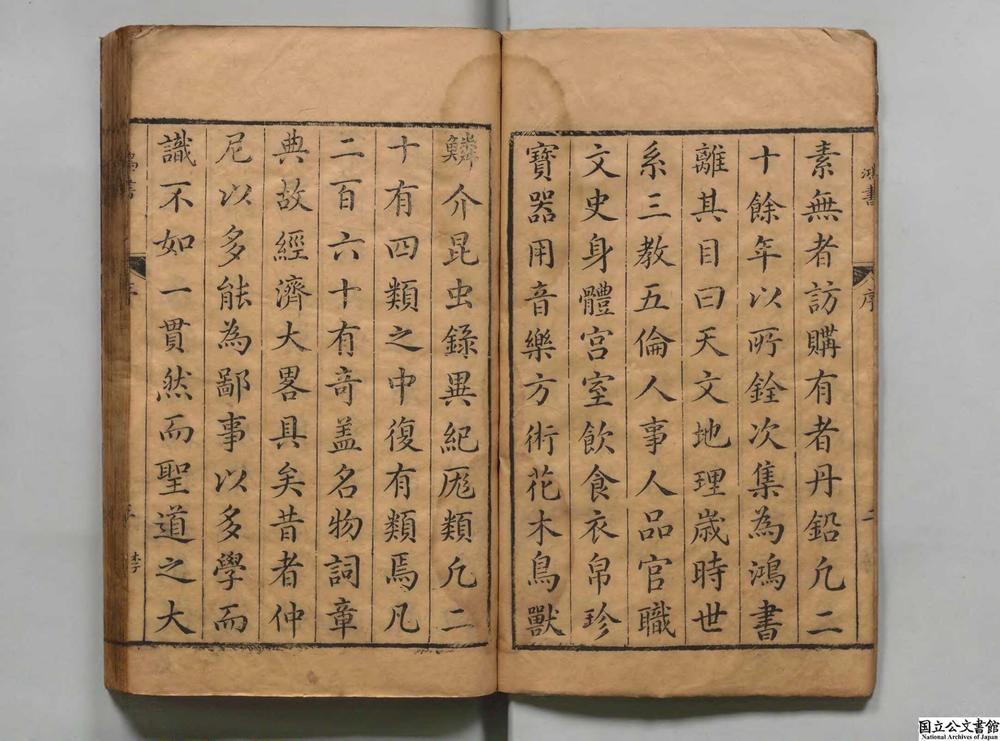 素無者訪購有者丹鉛凢二
十餘年以所銓次集為鴻書
離其目曰天文地理歲時世
系三教五倫人事人品官職
文史身體宫室飲食衣帛珍
寶器用音樂方術花木鳥獸
鱗介昆虫錄異紀厖類凢二
十有四類之中復有類焉凡
二百六十有奇盖名物詞章
典故經濟大畧具矣昔者仲
尼以多能為鄙事以多學而
識不如一貫然而聖道之大
鴻書
序
二
国立公文書館
National Archives of Japan